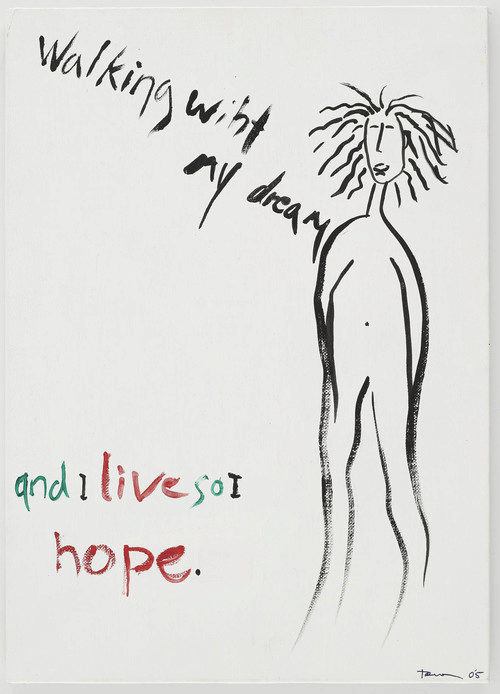 Walking wiht
my dream
and I live so I
hope.
05